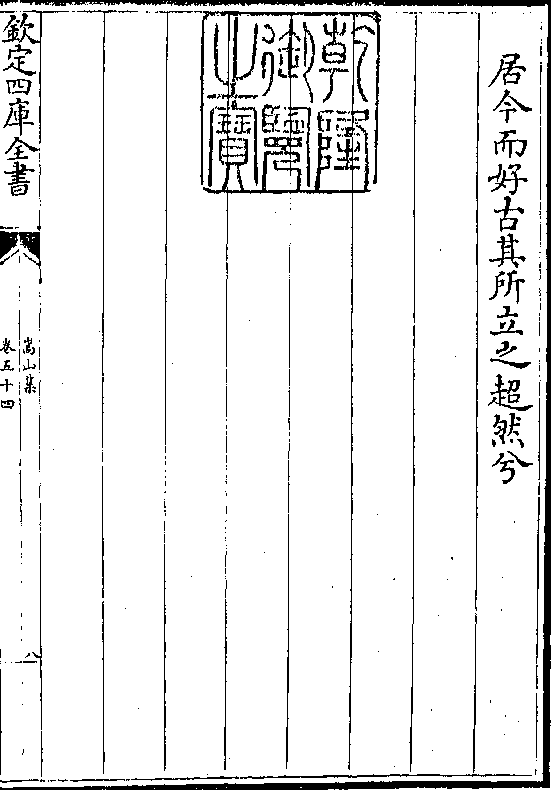 居今而好古其所立之超然兮
乾隆御覽之寶
欽定四庫全書
嵩山集
卷五十四
八